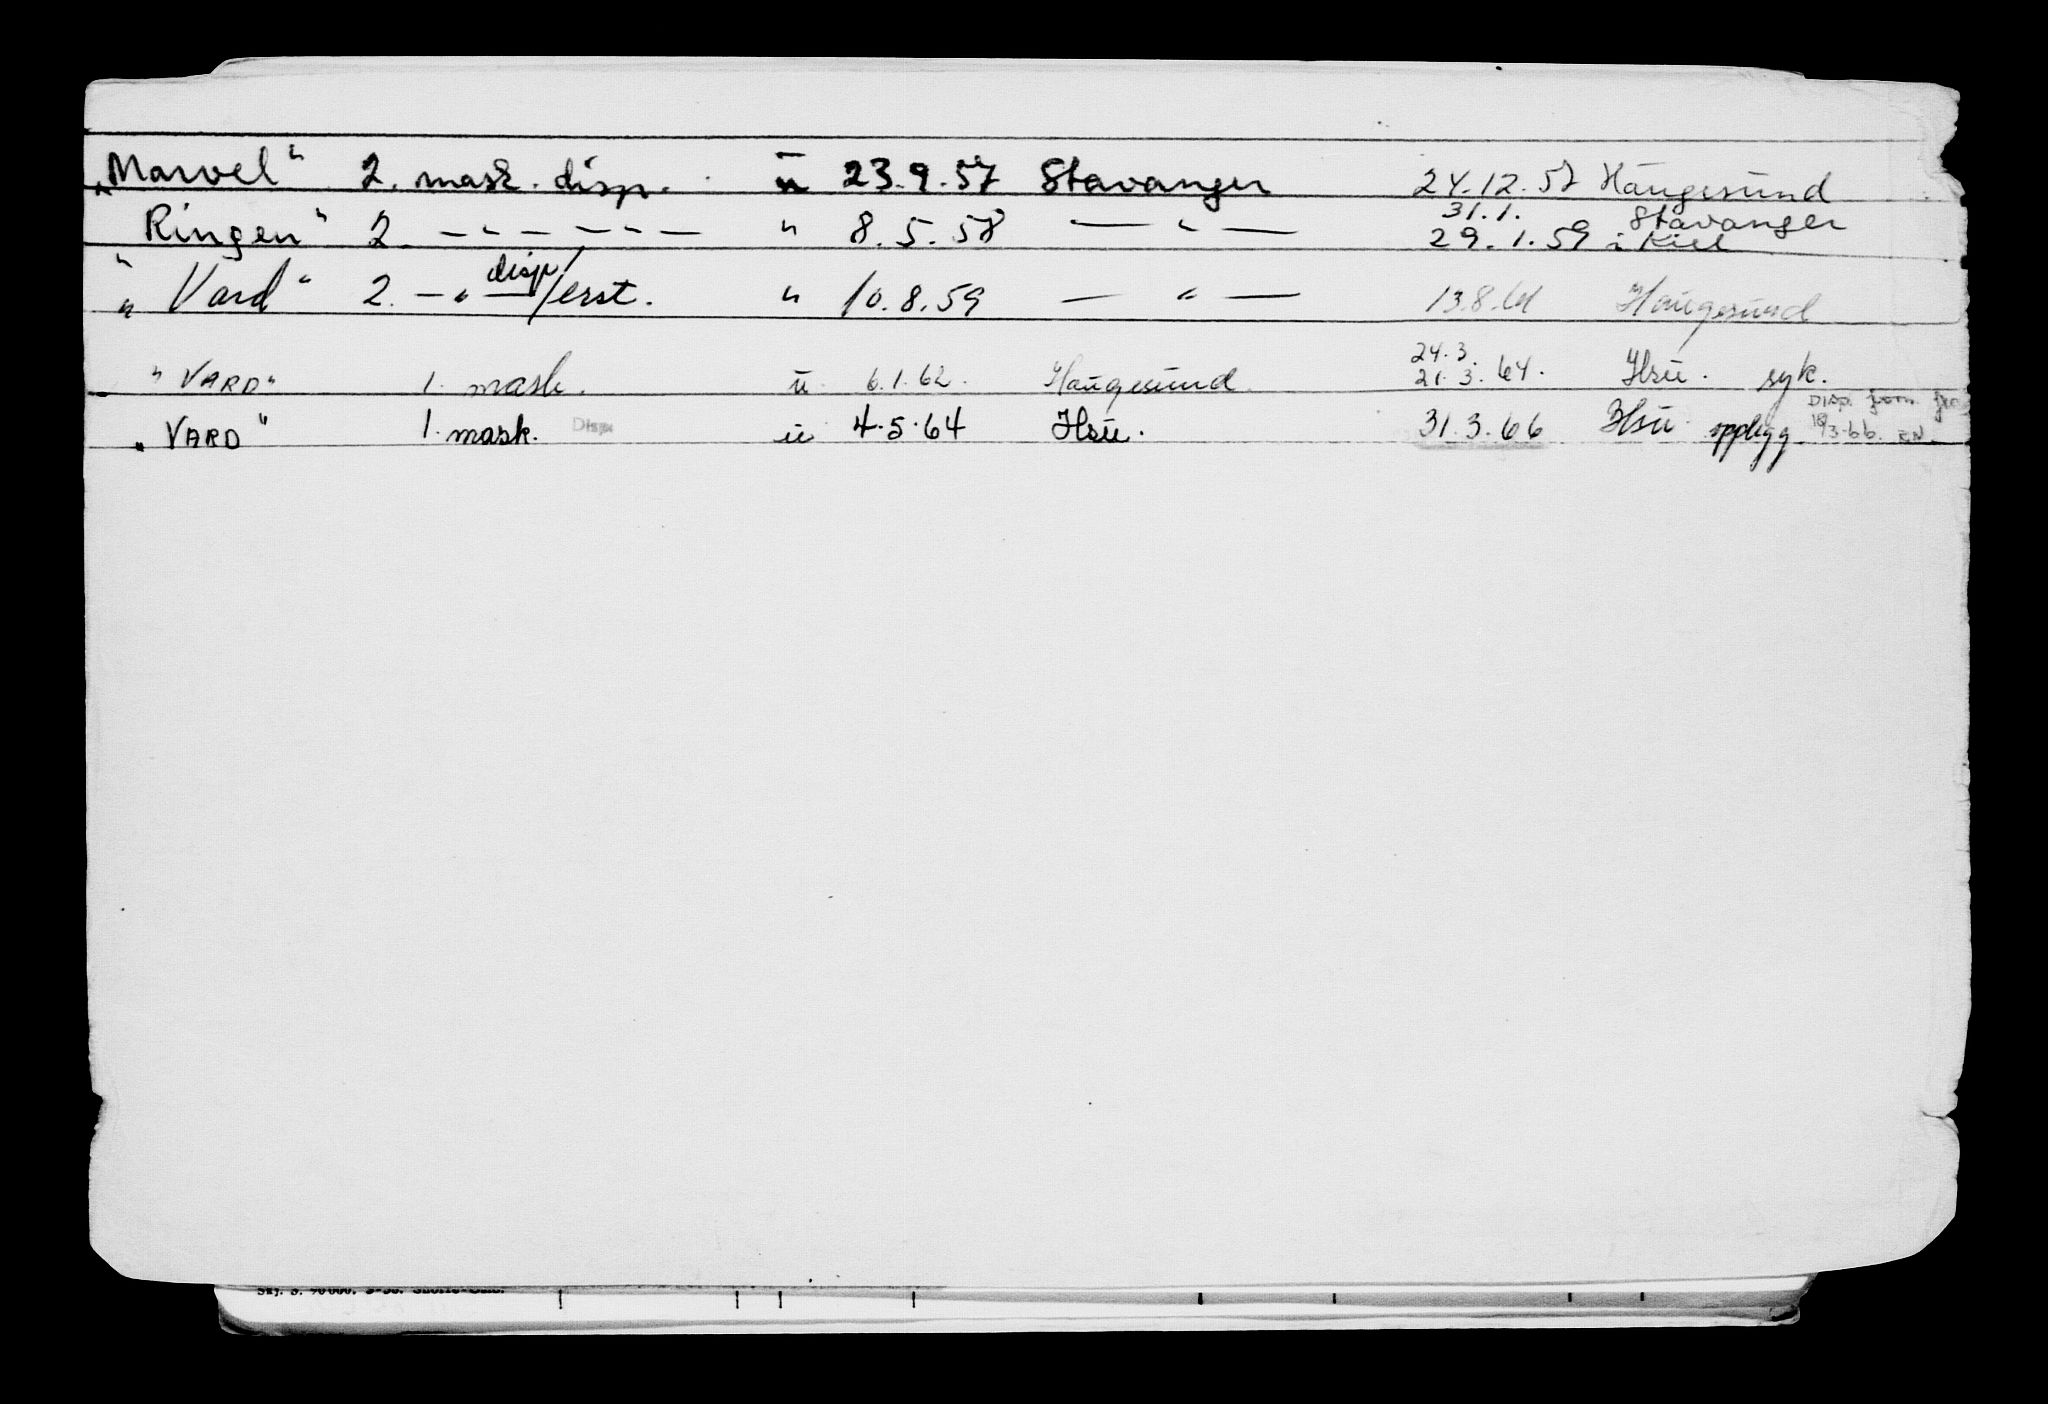 „Marvel" 2. mask. disp. u 23.9.57 Stavanger 24.12.57 Haugesund
„Ringen" 2. — " — — " — " 8.5.58 — " — 31.1. Stavanger
29.1.59 i Kiel
„Vard" 2. — " — disp/erst. " 10.8.59 — " — 13.8.61 Haugesund
"VARD" 1. mask. u 6.1.62. Haugesund 24.3.
21.3.64. Hsu. syk.
„VARD" 1. mask. Disp. u 4.5.64 Hsu. 31.3.66 Hsu opplegg Disp. fra
18/3-66. EN.